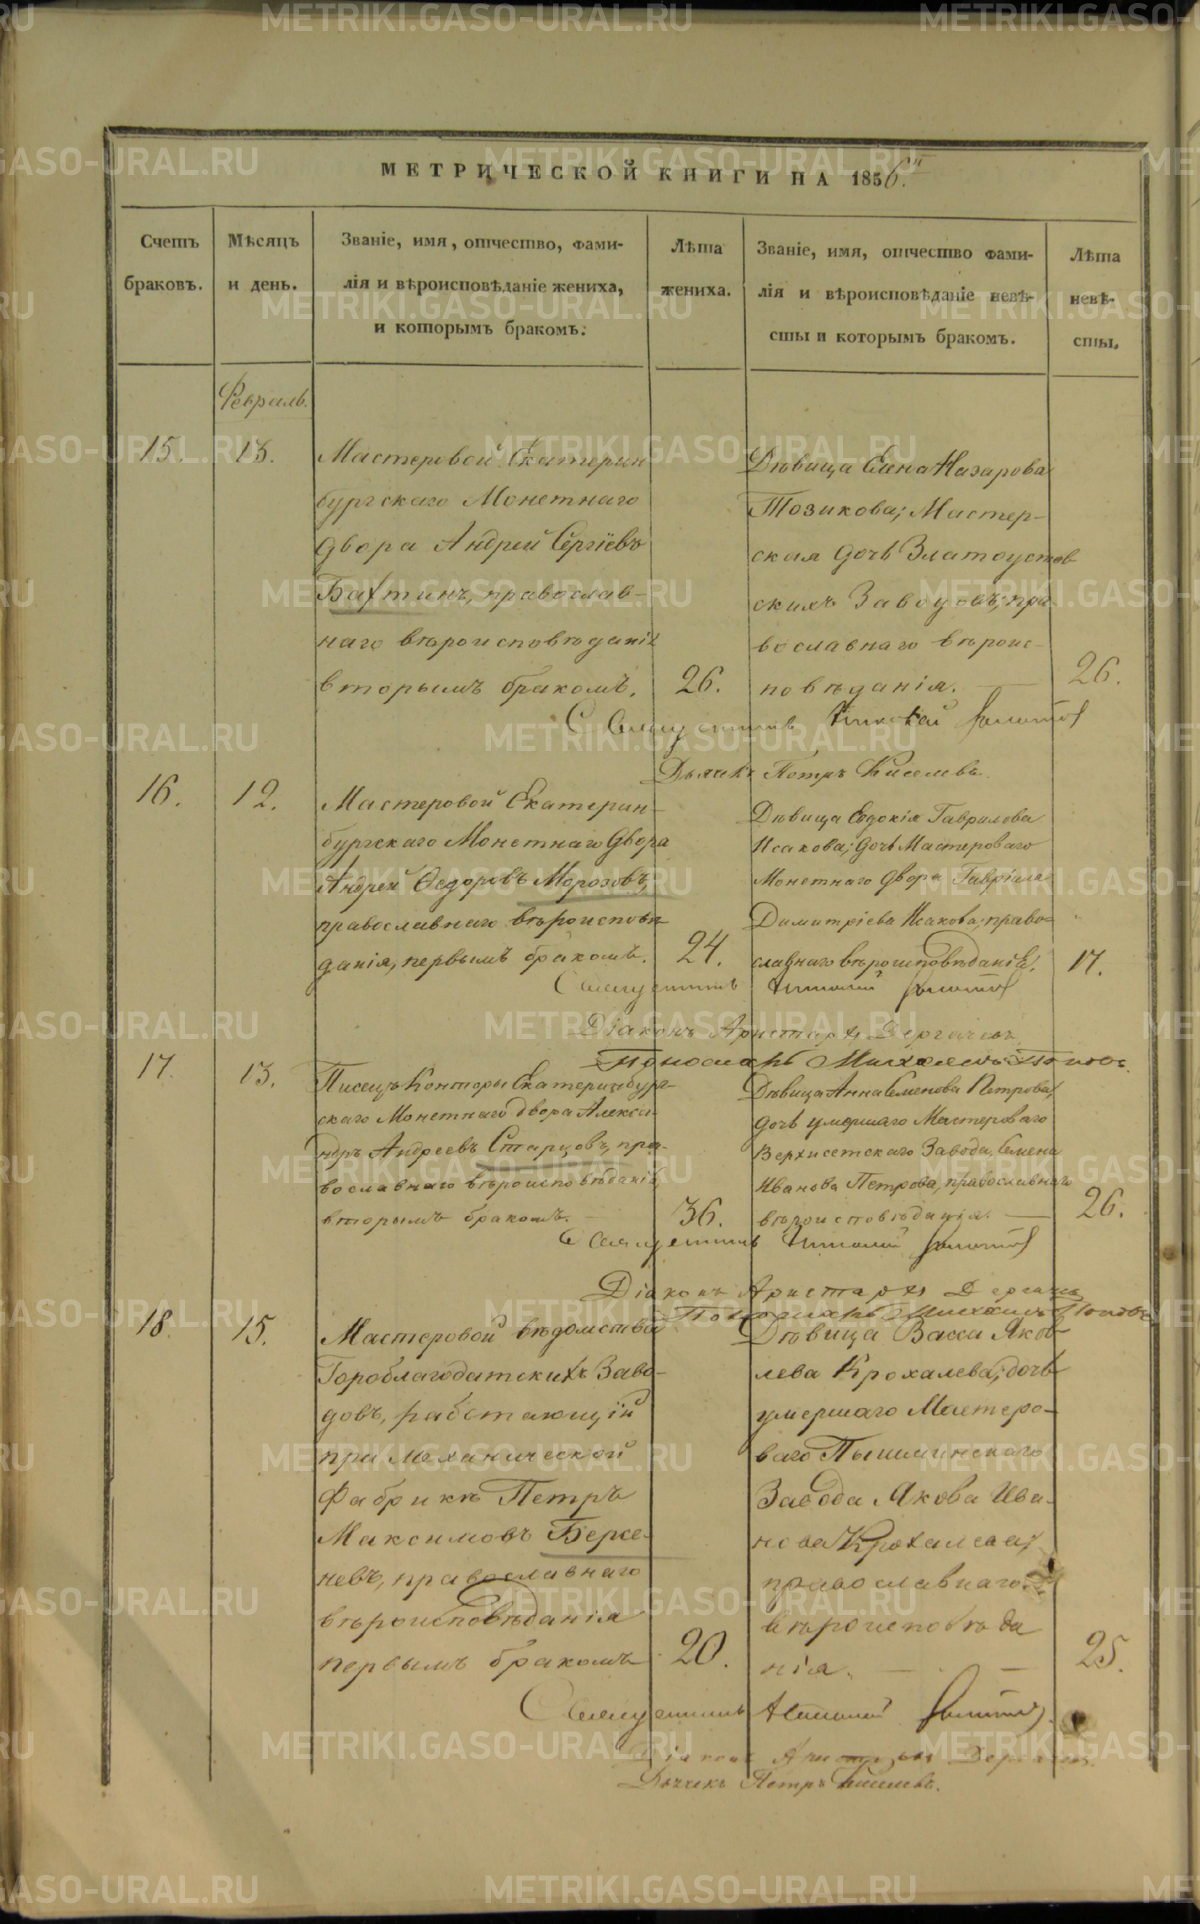 МЕТРИЧЕСКОЙ КНИГИ НА 1856.й
Счетъ браковъ.
Мѣсяцъ и день.
Званіе, имя, отчество, фами-
лія и вѣроисповѣданіе жениха,
и которымъ бракомъ.
Лѣта жениха.
Званіе, имя, отчество фами-
лія и вѣроисповѣданіе невѣ-
сты и которымъ бракомъ.
Лѣта невѣ-
сты.
Февраль.
15. 13.
Мастеровой Екатерин
бургскаго Монетнаго
двора Андрей Сергіевъ
Бахтинъ, православ-
наго вѣроисповѣданія
вторымъ бракомъ. 26.
Дѣвица Елена Назарова
Тозикова; Мастер-
ская дочь Златоустов
скихъ Заводовъ; пра
вославнаго вѣроис-
повѣданія. 26.
Священникъ Николай
Дьячекъ Петръ Киселевъ.
16. 12.
Мастеровой Екатерин-
бургскаго Монетнаго двора
Андрей Ѳедоровъ Морозовъ,
православнаго вѣроисповѣ
данія, первымъ бракомъ. 24.
Дѣвица Евдокія Гаврилова
Исакова; дочь Мастероваго
Монетнаго двора Гавріила
Димитріева Исакова, право-
славнаго вѣроисповѣданія. 17.
Священникъ
Діаконъ Аристархъ Дергачевъ
Пономарь Михаилъ Поповъ
17. 13.
Писецъ Конторы Екатеринбург
скаго Монетнаго двора Алекса-
ндръ Андреевъ Старцовъ, пра-
вославнаго вѣроисповѣданія,
вторымъ бракомъ. 36.
Дѣвица Анна Семенова Петрова,
дочь умершаго Мастероваго
Верхисетскаго Завода, Семена
Иванова Петрова, православнаго
вѣроисповѣданія. 26.
Священникъ
Діаконъ Аристархъ Дергачевъ
Пономарь Михаилъ Поповъ
18. 15.
Мастеровой вѣдомства
Гороблагодатскихъ Заво-
довъ, работающій
при Механической
Фабрикѣ Петръ
Максимовъ Берсе-
невъ, православнаго
вѣроисповѣданія
первымъ бракомъ 20.
Дѣвица Васса Яков-
лева Крохалева; дочь
умершаго Мастеро-
ваго Пышминскаго
Завода Якова Ива-
нова Крохалева,
православнаго
вѣроисповѣда
нія. 25.
Священникъ
Діаконъ Аристархъ Дергачевъ
Дьячекъ Петръ Киселевъ.
METRIKI.GASO-URAL.RU